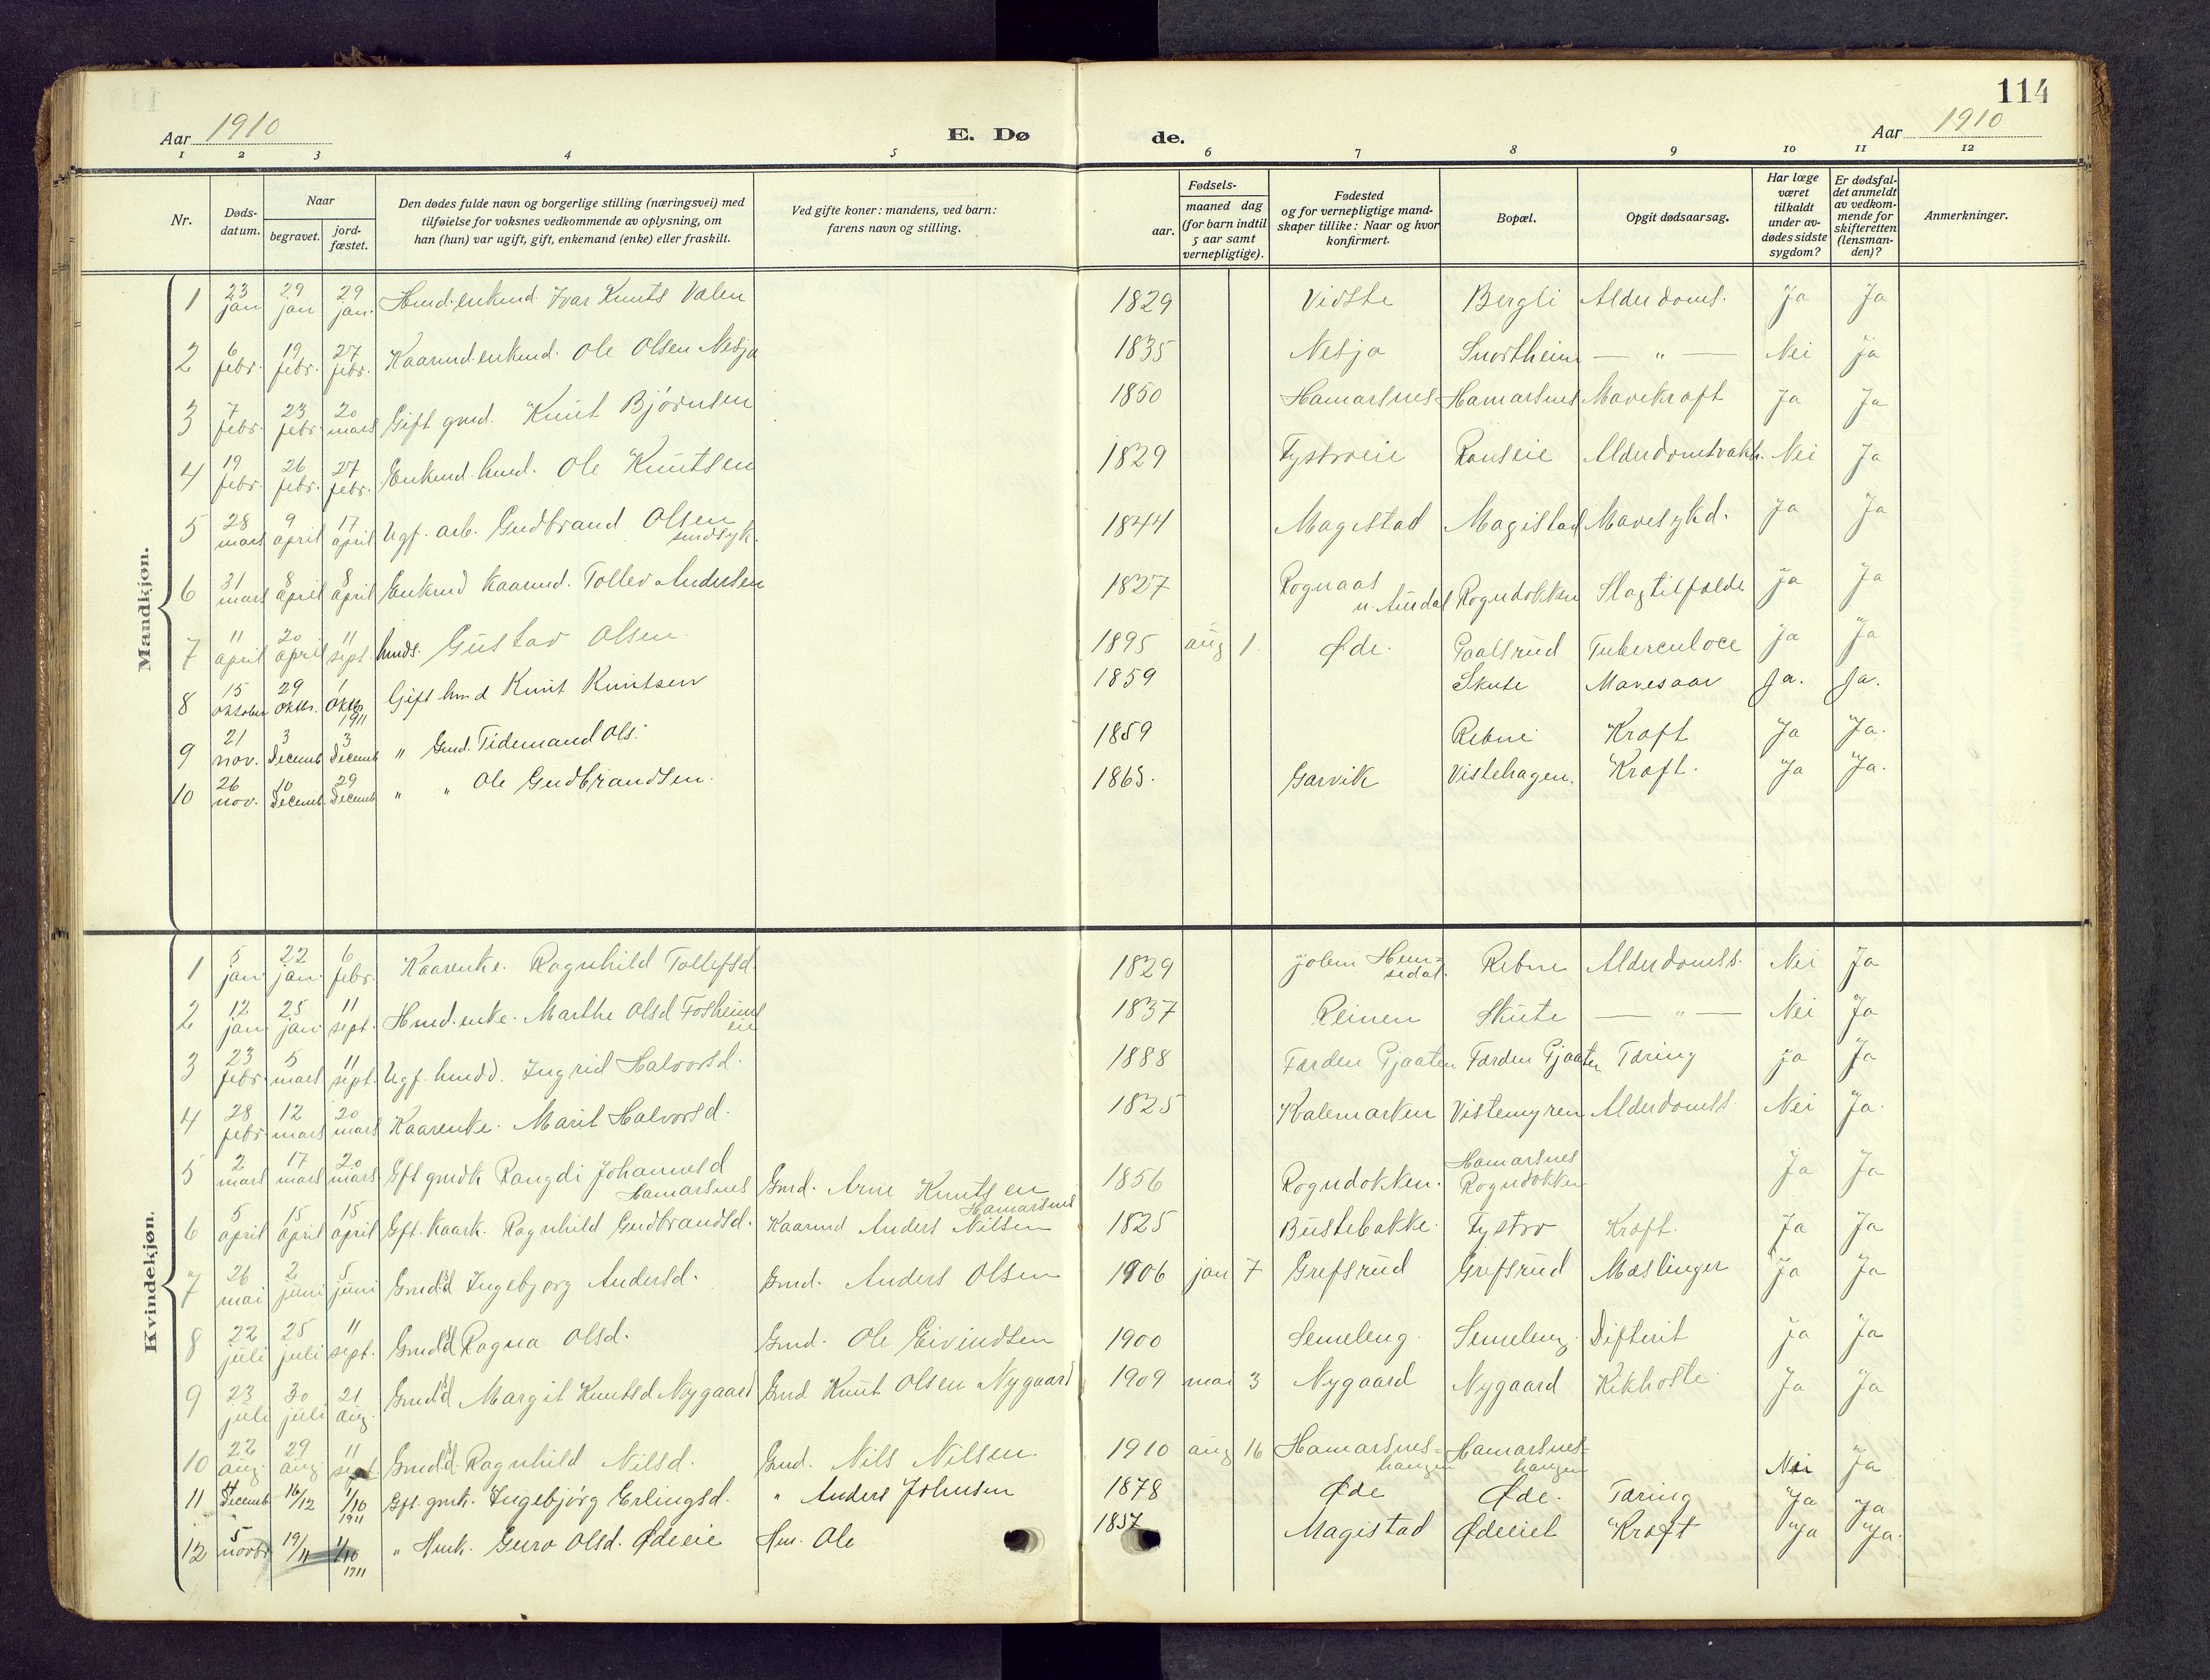 114
Aar 1910
E. Dø de.
Aar 1910
1 2 3 4 5 6 7 8 9 10 11 12
Nr.
Døds-datum.
Naar
begravet.
jord-fæstet.
Den dødes fulde navn og borgerlige stilling (næringsvei) med
tilføielse for voksnes vedkommende av oplysning, om
han (hun) var ugift, gift, enkemand (enke) eller fraskilt.
Ved gifte koner: mandens, ved barn:
farens navn og stilling.
Fødsels-
aar.
maaned dag
(for barn indtil
5 aar samt
vernepligtige).
Fødested
og for vernepligtige mand-
skaper tillike: Naar og hvor
konfirmert.
Bopæl.
Opgit dødsaarsag.
Har læge
været
tilkaldt
under av-
dødes sidste
sygdom?
Er dødsfal-
det anmeldt
av vedkom-
mende for
skifteretten
(lensman-
den)?
Anmerkninger.
Mandkjøn.
1 23 jan 29 jan 29 jan. Hmd. enkmd. Ivar Knuts Valen 1829 Vidste Bergli Alderdoms. Ja Ja
2 6 febr. 19 febr. 27 febr. Kaarmd. enkmd. Ole Olsen Nesja 1835 Nesja Snortheim — " — Nei Ja
3 7 febr. 23 febr. 20 mars Gift gmd. Knut Bjørnsen 1850 Hamarsnes Hamarsnes Mavekræft Ja Ja
4 19 febr. 26 febr. 27 febr. Enkmd. hmd. Ole Knutsen 1829 Fystroeie Ranseie Nei Ja
5 28 mars 9 april 17 april Ugf. arb. Gudbrand Olsen sindsyk. 1844 Magistad Magistad Mavesykd. Ja Ja
6 31 mars 8 april 8 april Enkmd Kaarmd. Tollev Andersen 1827 Rognaas n. Aurdal Rogndokken Slagtilfælde Ja Ja
7 11 april 20 april 11 sept. hmds. Gustav Olsen 1895 aug 1. Øde. Tuberculoce Ja Ja
8 15 oktober 29 oktbr. 1 oktbr 1911 Gift hmd Knut Knutsen 1859 Skute Mavesaar Ja. Ja.
9 21 nov. 3 Decemb 3 Decemb " Gmd. Tidemand Ols. 1859 Rebne Kræft Ja Ja.
10 26 nov. 10 Decemb. 29 Decemb. " " Ole Gudbrandsen. 1865. Garvik Vistehagen. Kræft. Ja Ja.
Kvindekjøn.
1 5 jan. 22 jan. 6 febr. Kaarenke. Ragnhild Tollefsd. 1829 Jolem Hemsedal. Rebne Alderdomss. Nei Ja
2 12 jan. 25 jan. 11 sept. Hmd. enke. Marthe Olsd Fosheims eie 1837 Reinen Skute — " — Nei Ja
3 23 febr. 5 mars 11 sept. Ugf. hmdd. Ingrid Halvorsd. 1888 Færden Pjaaten Færden Pjaaten Tæring Ja Ja
4 28 febr. 12 mars 20 mars Kaarenke. Marit Halvorsd. 1825 Kalemarken Vistemyren Alderdomss. Nei Ja.
5 2 mars 17 mars 20 mars Gft gmdk Rangdi Johannesd Hamarsnes Gmd. Arne Knutsen Hamarsnes 1856 Rogndokken. Hamarsnes Rogndokken Ja Ja
6 5 april 15 april 15 april Gft. Kaark. Ragnhild Gudbrandsd. Kaarmd Anders Nilsen 1825 Bustebakke. Fystro Kræft. Ja Ja
7 26 mai 2 juni 5 juni Gmdsd Ingebjørg Andersd. Gmd. Anders Olsen 1906 jan 7 Grefsrud Grefsrud Mæslinger Ja Ja
8 22 juli 25 juli 11 sept. Gmdsd Ragna Olsd. Gmd. Ole Eivindsen 1900 Semeleng. Semeleng. Difterit Ja Ja
9 23 juli 30 juli 21 aug. Gmdsd Margit Knutsd Nygaard Gmd Knut Olsen Nygaard 1909 mai 3 Nygaard Nygaard Kikhoste Ja Ja
10 22 aug. 29 aug. 11 sept. Gmdsd. Ragnhild Nilsd. Gmd. Nils Nilsen. 1910 aug 16 Hamarsneshaugen Hamarsneshaugen Nei Ja
11 Decemb 16/12 1/10 1911 Gft. gmk. Ingebjørg Erlingsd. " Anders Johnsen 1878 Øde Øde. Tæring Ja Ja
12 5 novbr 19/11 1/10 1911 " Hmk. Guro Olsd. Ødeeie Hm. Ole 1857 Magistad Ødeeiet Kræft Ja Ja.